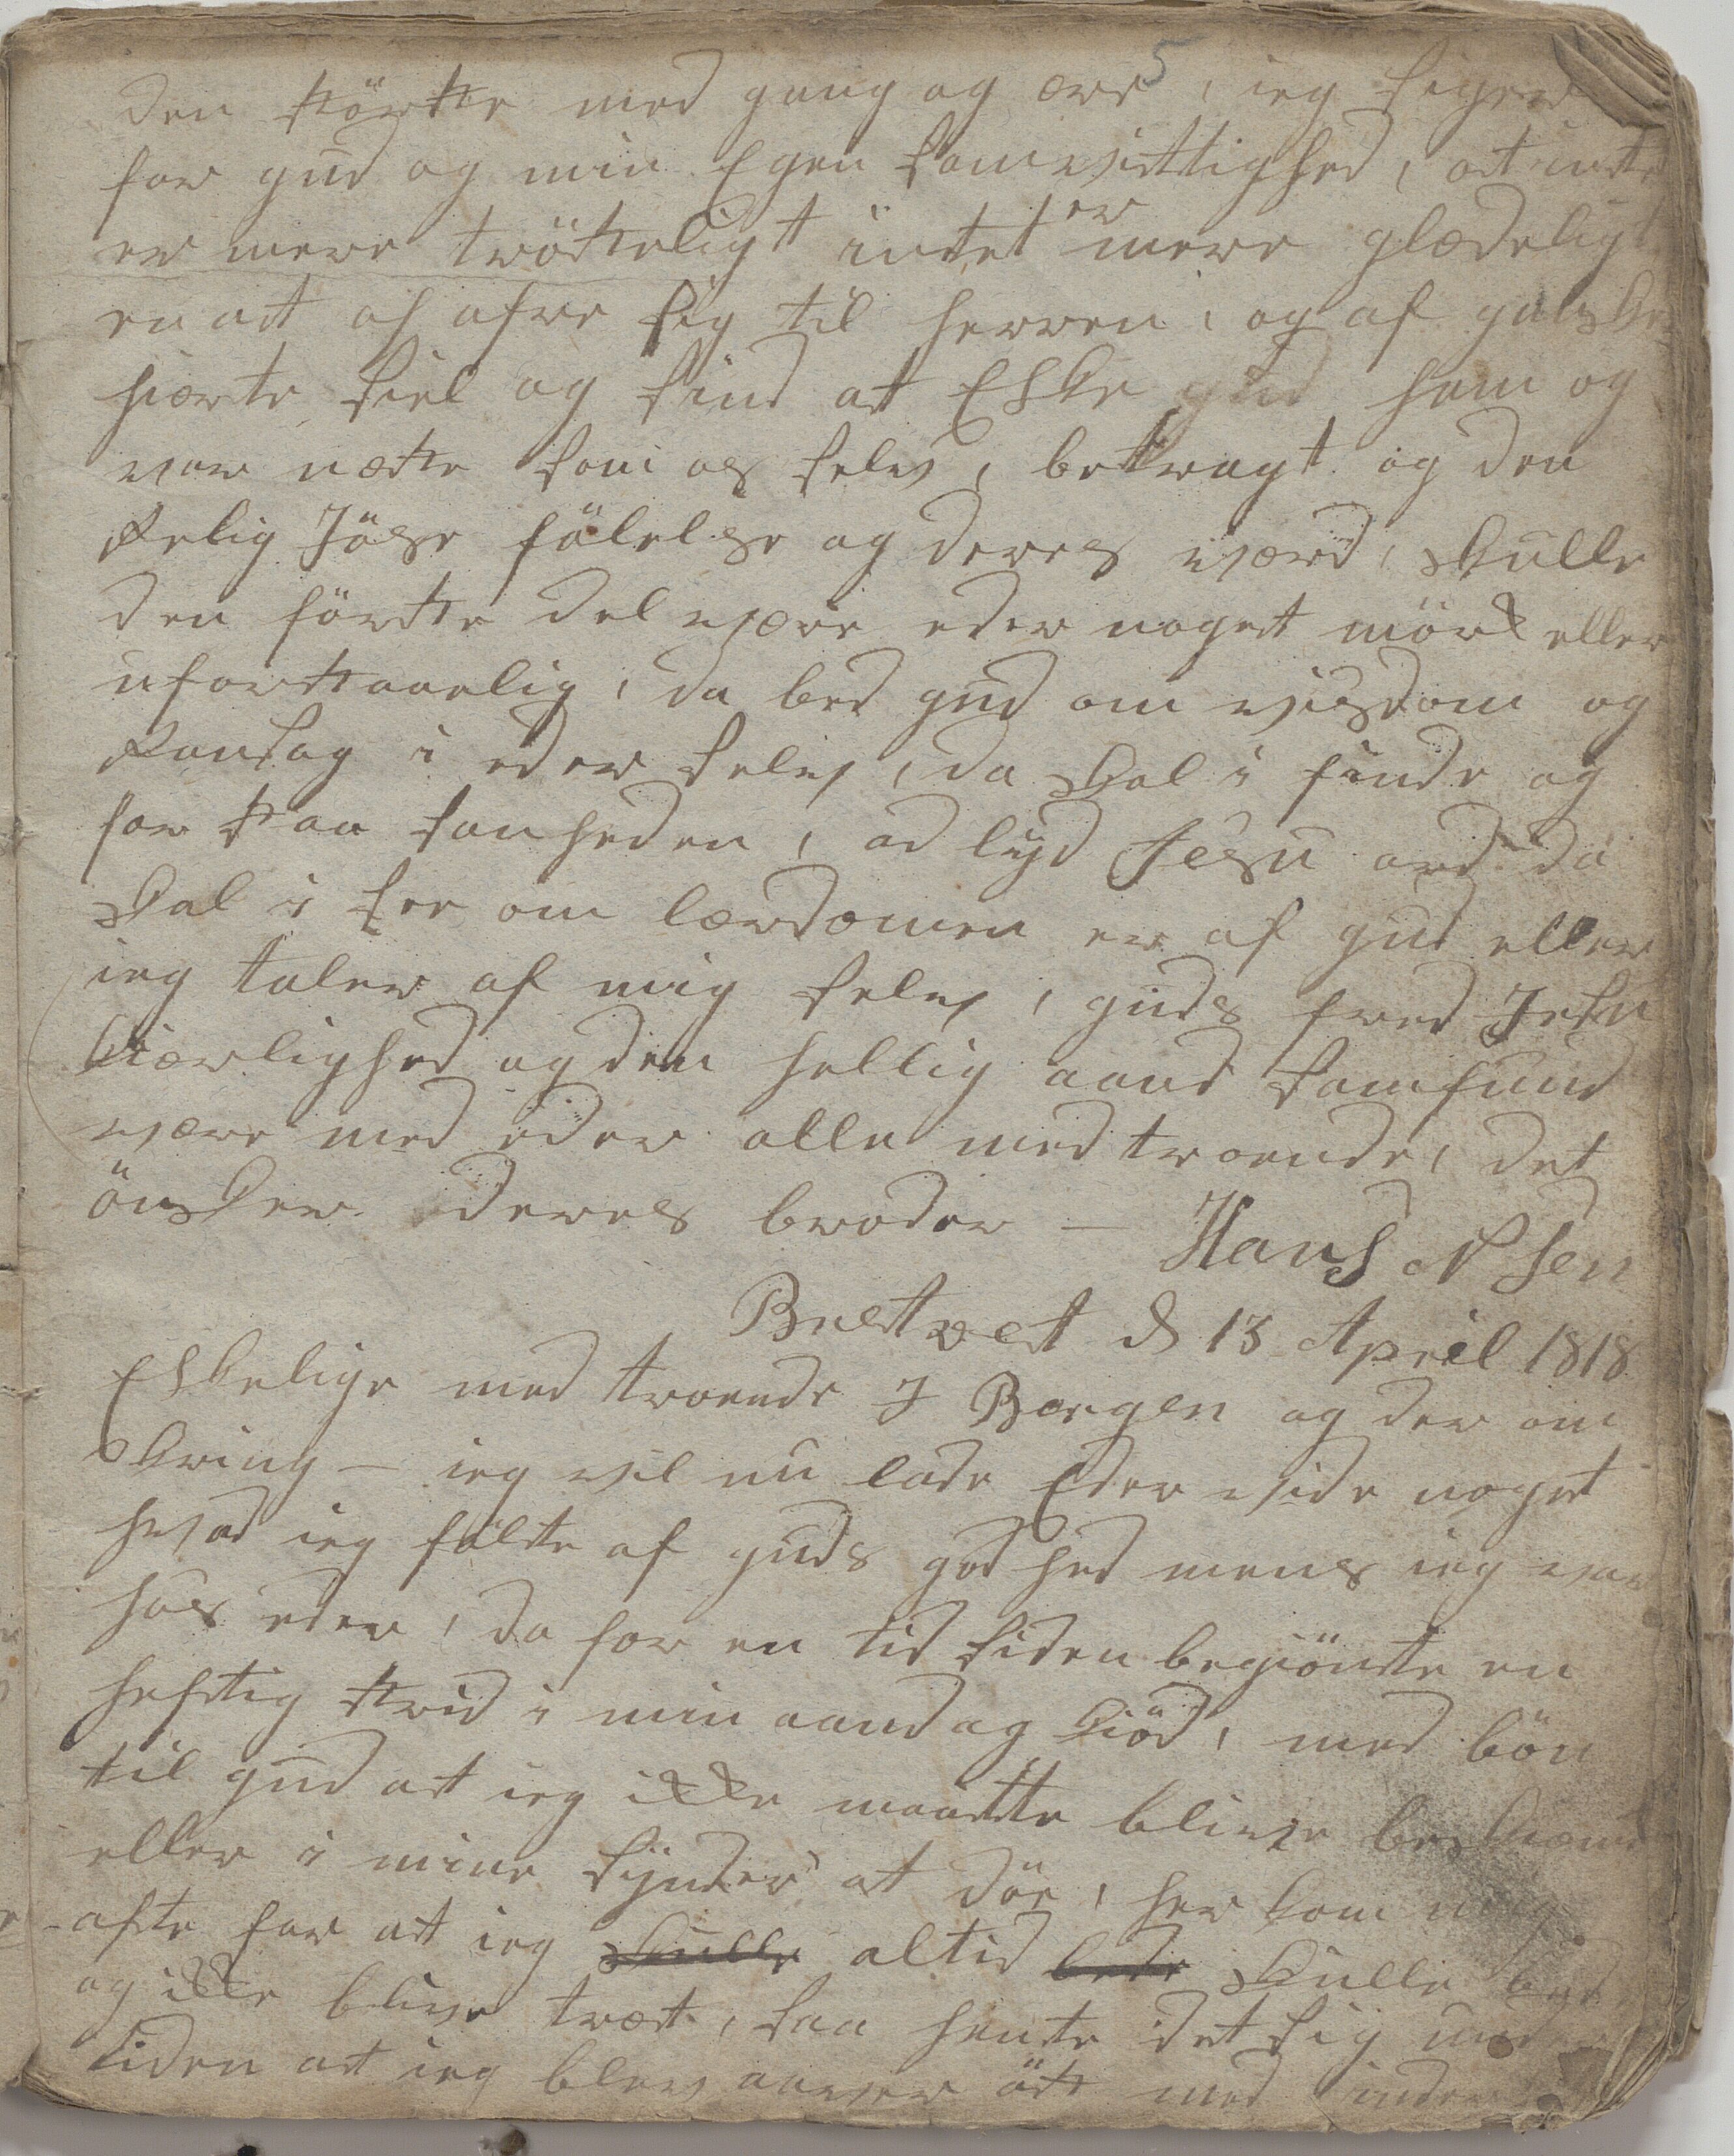 5
den störste med gang og ære, ieg siger
for gud og min Egen samvittighed, at intet
er mere tröstteligt intet er mere glædeligt
en at of ofre sig til herren, og af ganske
hierte siel og sind at Elske gud ham og
vor næste som os selv, betragt og den
Relig Jöse fölelse og deres værd, skulle
den förste del være eder noget mörk eller
uforstaaelig, da bed gud om visdom og
Ransag i eder selv, da skal i finde og
for staa sanheden, ad lyd Jesu ord da
skal i see om lærdomen er af gud eller
ieg taler af mig selv, guds fred Jesu
kierlighed og den hellig aand samfund
være med eder alle med troende, det
önsker deres broder — Hans N Sen
Bredtvedt d 13 April 1818
Elskelige med troende I Bergen og der om
kring — ieg vil nu lade Eder vide noget
hvad ieg fölte af guds godhed mens ieg var
hos eder, da for en tid siden begiönte en
heftig strid i min aand og kiöd, med bön
til gud at ieg ikke maatte blive beskiemt
eller i mine synder at döe, her kom mig
ofte for at ieg skulle altid bede skulle bede
og ikke blive træt, saa hente det sig ved
tiden at ieg blev aaver öst med inder